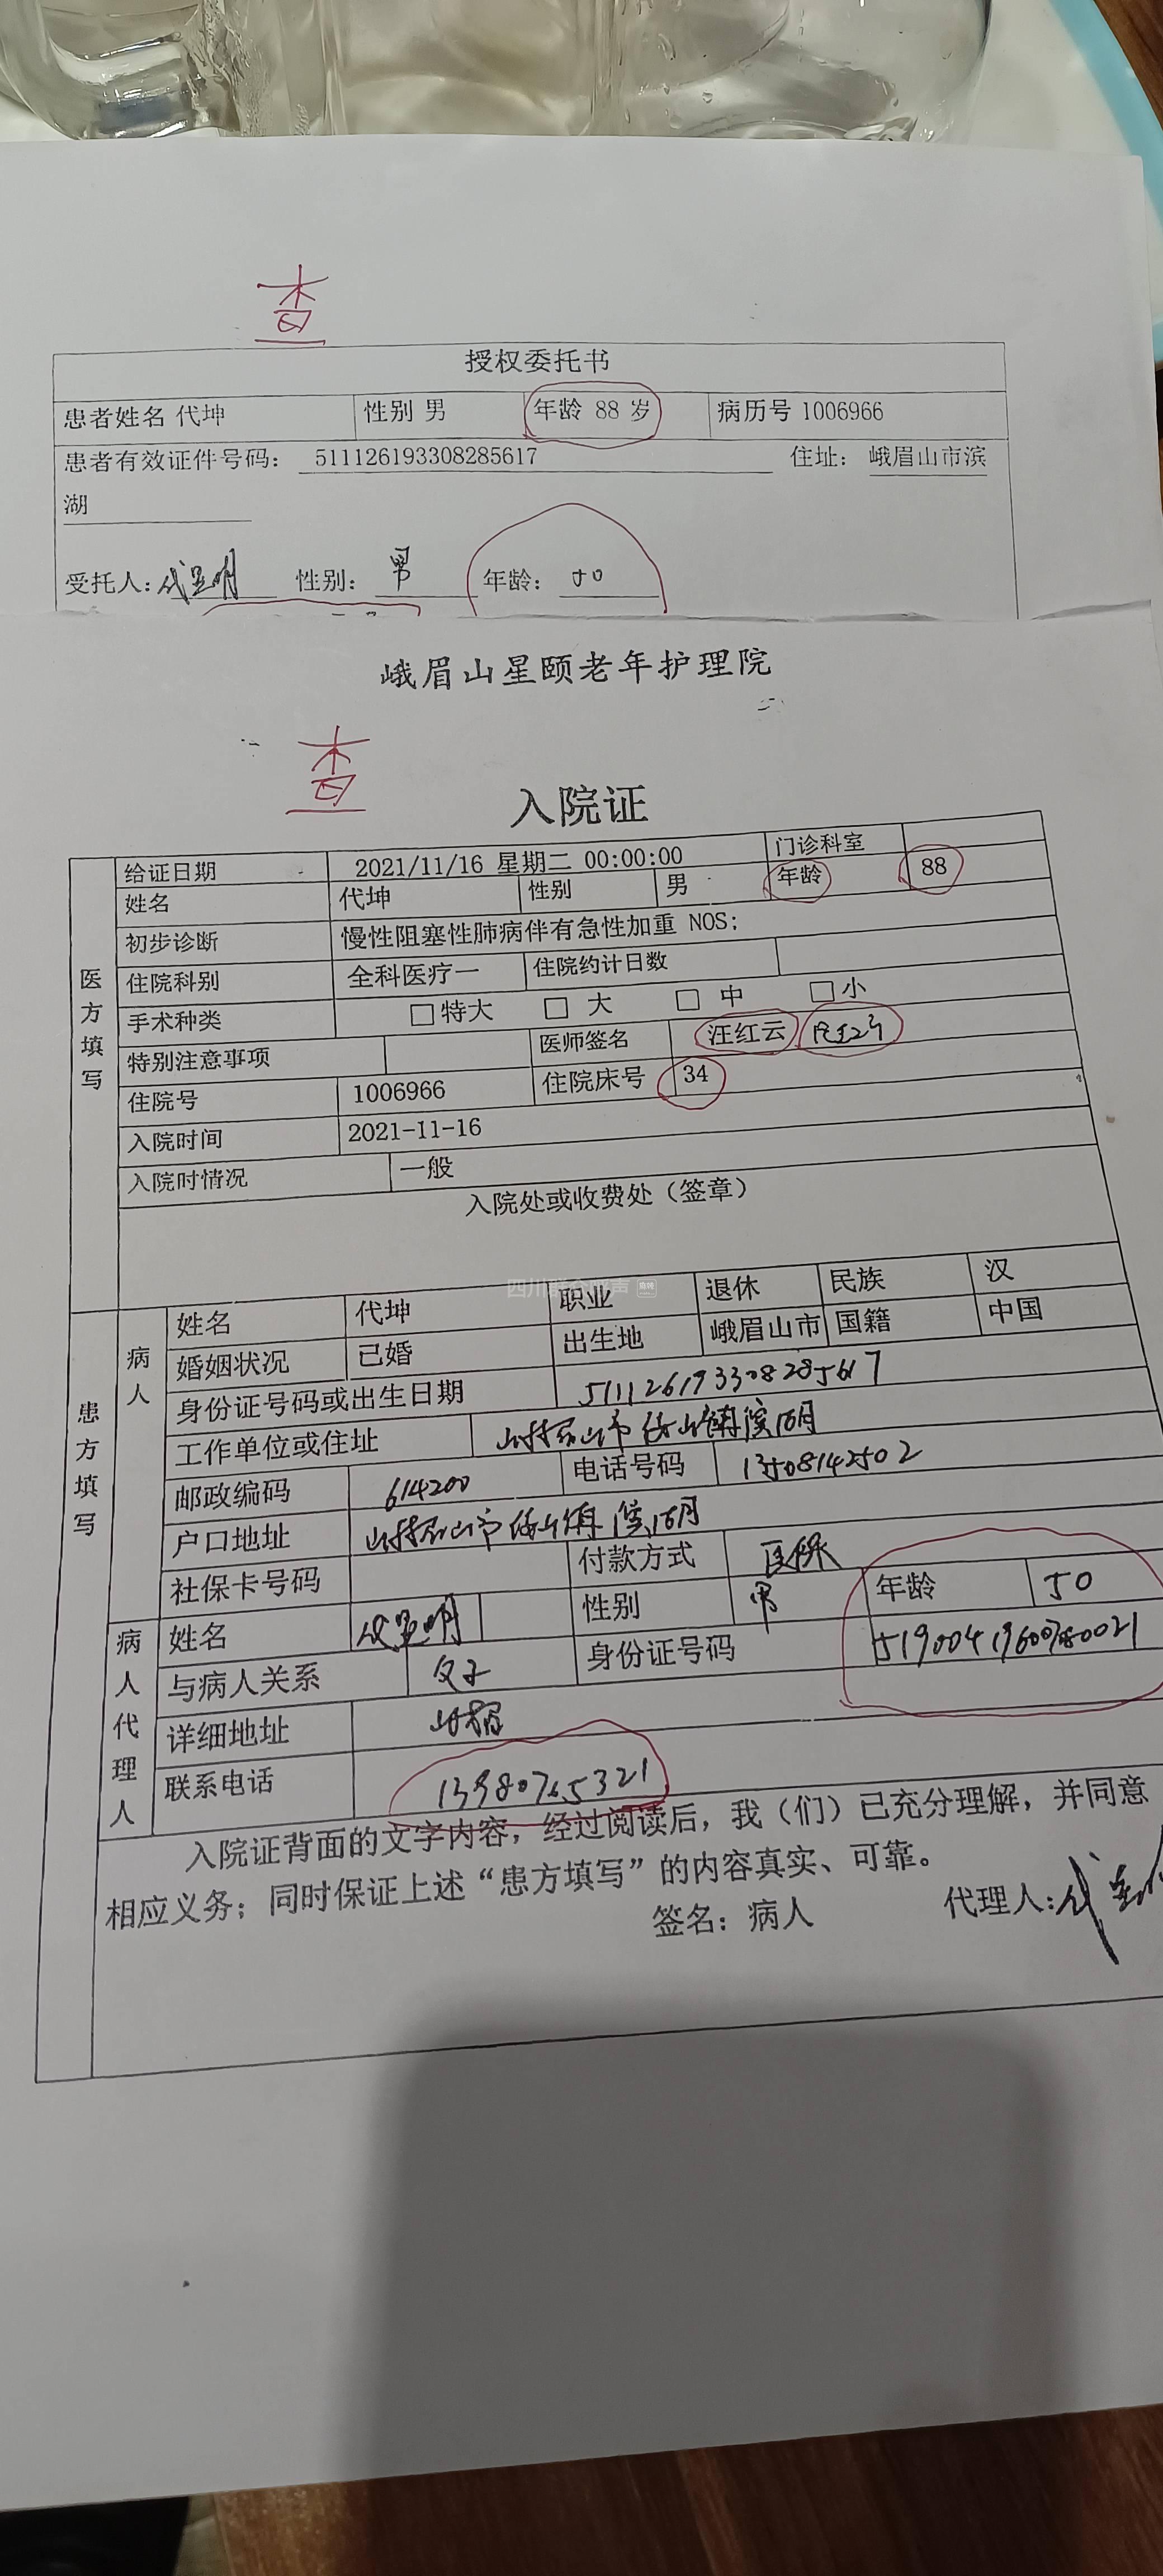 查
授权委托书
患者姓名 代坤 性别 男 年龄 88 岁 病历号 1006966
患者有效证件号码： 511126193308285617 住址： 峨眉山市滨
湖
受托人： 性别： 男 年龄： 50
峨眉山星颐老年护理院
查
入院证
医方填写
给证日期 2021/11/16 星期二 00:00:00 门诊科室
姓名 代坤 性别 男 年龄 88
初步诊断 慢性阻塞性肺病伴有急性加重 NOS;
住院科别 全科医疗一 住院约计日数
手术种类 □特大 □ 大 □ 中 □小
特别注意事项 医师签名 汪红云
住院号 1006966 住院床号 34
入院时间 2021-11-16
入院时情况 一般
入院处或收费处（签章）
患方填写
病人
姓名 代坤 职业 退休 民族 汉
婚姻状况 已婚 出生地 峨眉山市 国籍 中国
身份证号码或出生日期 511126193308285617
工作单位或住址
邮政编码 614200 电话号码 13508142502
户口地址
社保卡号码 付款方式 医保
病人代理人
姓名 性别 男 年龄 50
与病人关系 父子 身份证号码
详细地址
联系电话 13980765321
入院证背面的文字内容，经过阅读后，我（们）已充分理解，并同意
相应义务；同时保证上述“患方填写”的内容真实、可靠。
签名：病人 代理人：